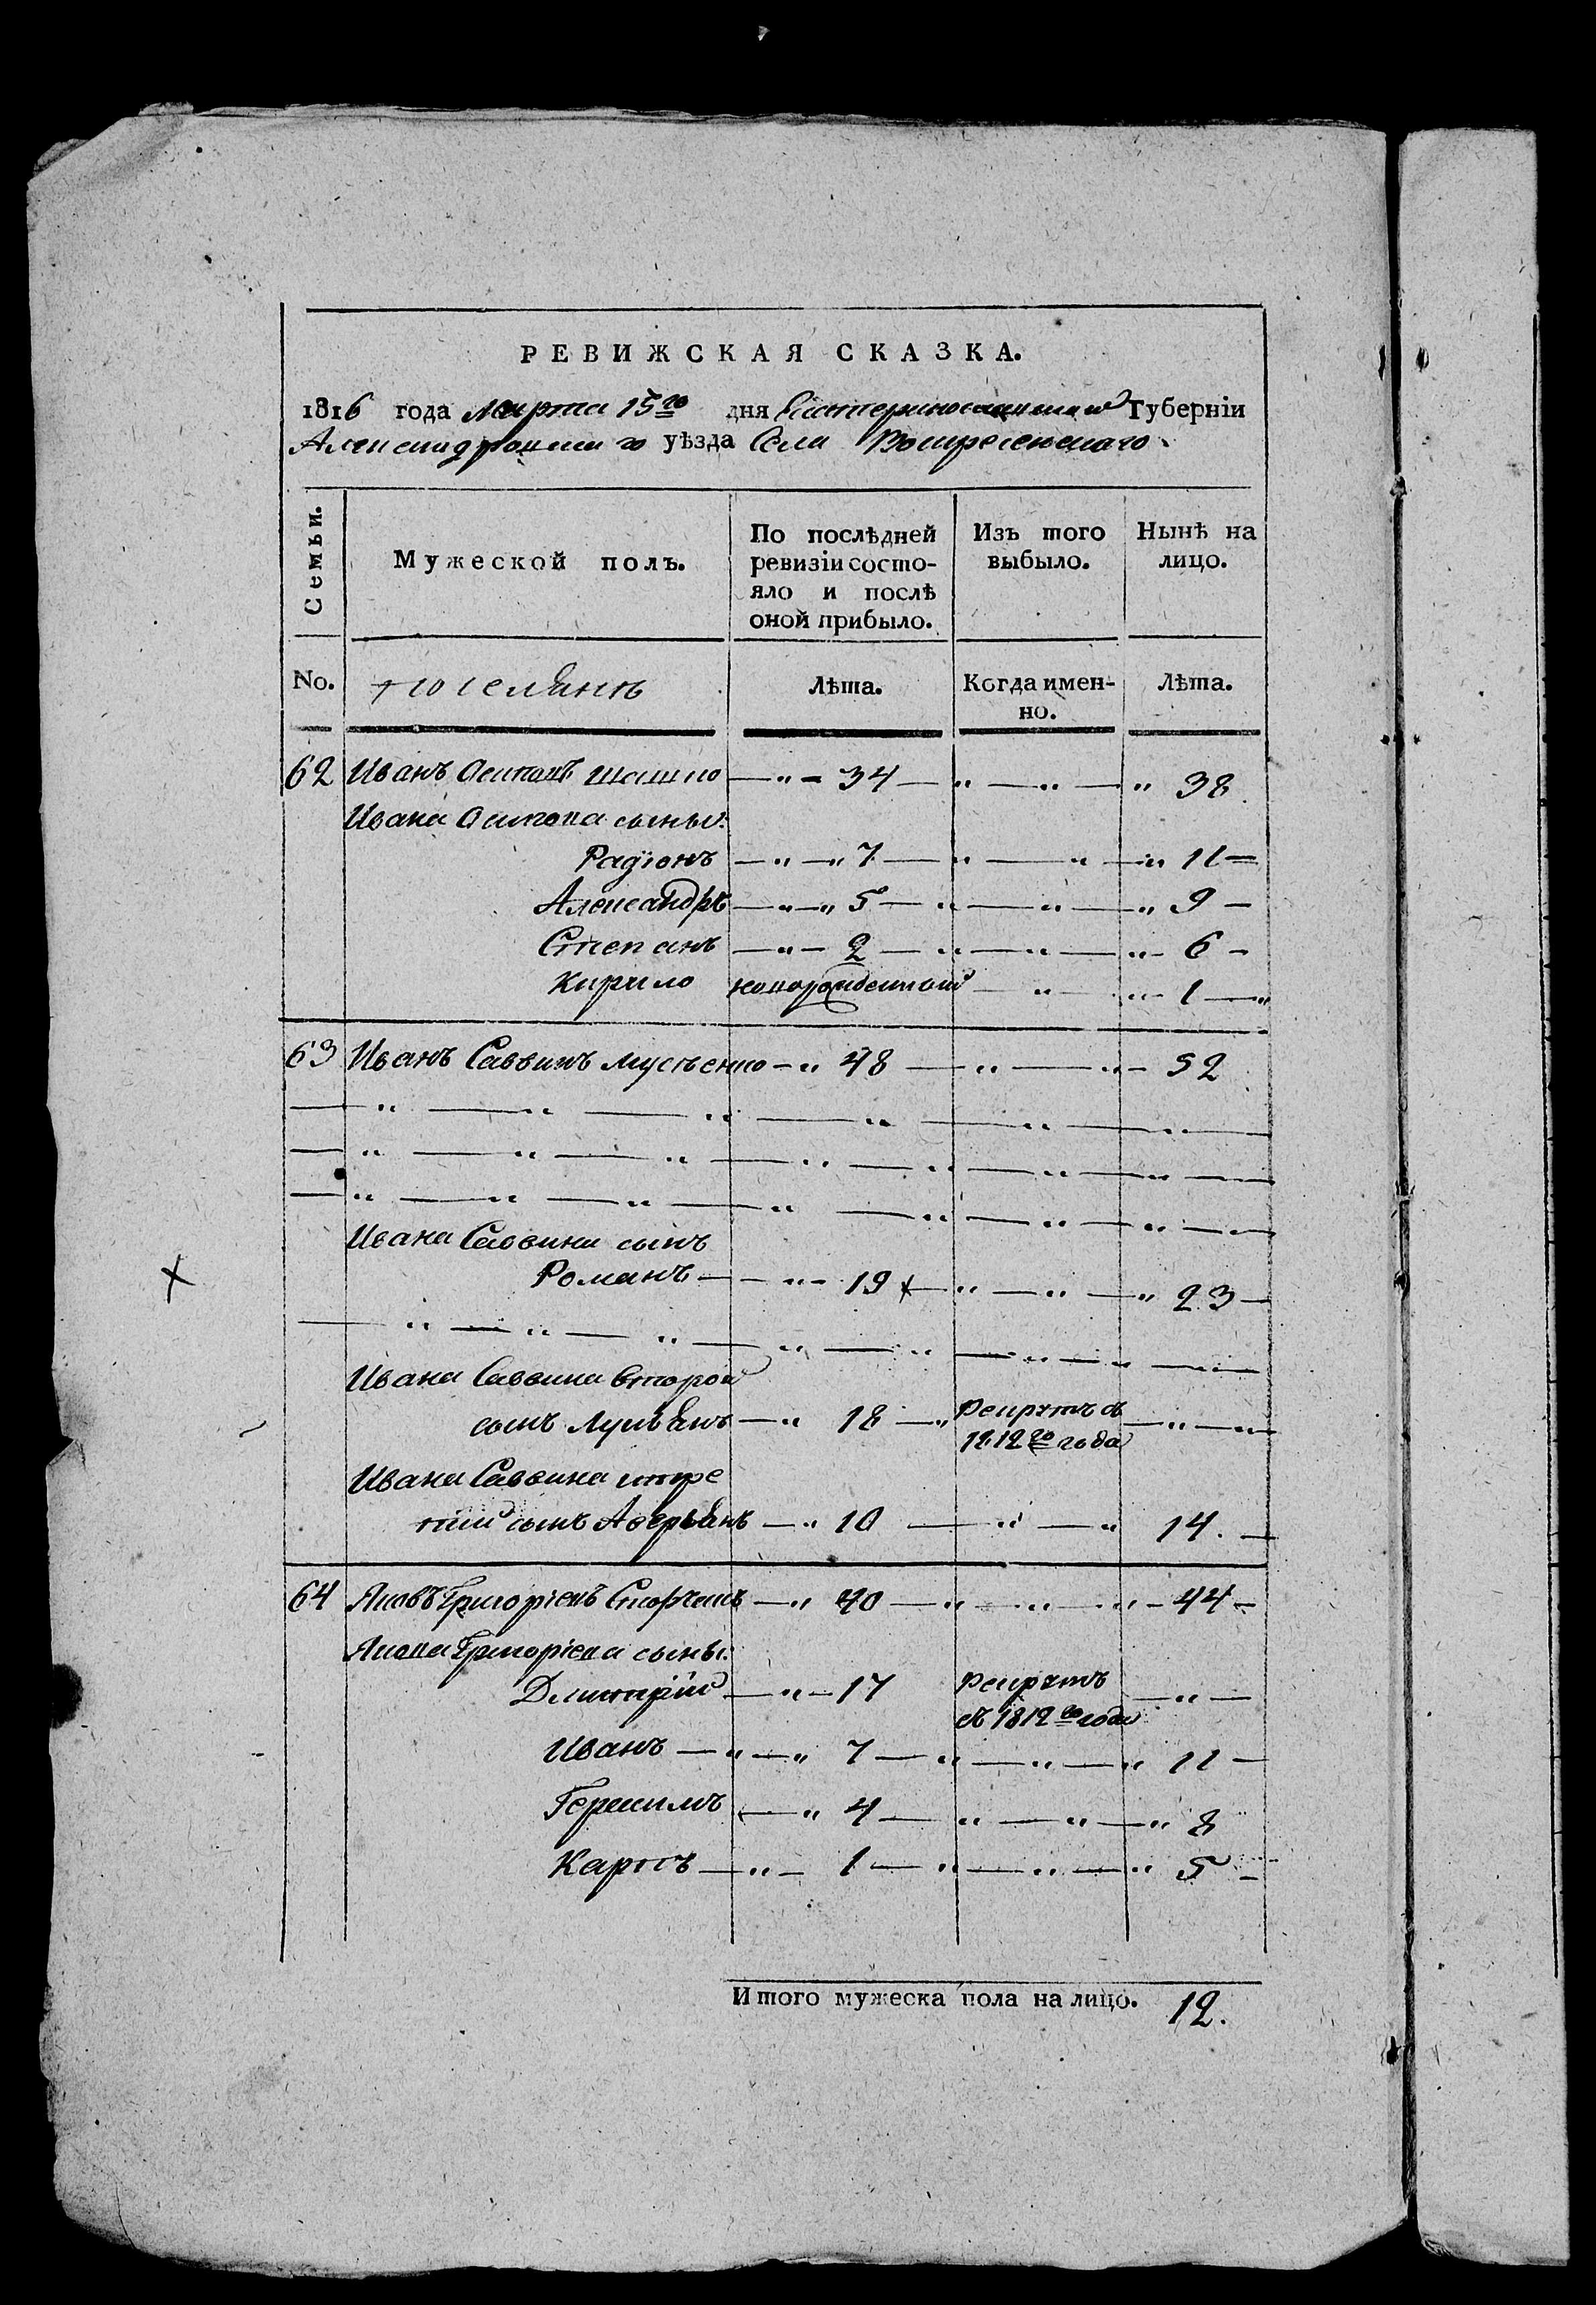 РЕВИЖСКАЯ СКАЗКА.
1816 года Марта 15го дня Екатеринославской Губерніи
Александровского уѣзда Села Воскресенскаго
Семьи.
Мужеской полъ.
По послѣдней ревизіи состо-
яло и послѣ
оной прибыло.
Изъ того
выбыло.
Нынѣ на
лицо.
No. поселянъ Лѣта. Когда имен-
но. Лѣта.
62 Иванъ Осиповъ — " — 34 — " — " — " 38
Ивана Осипова сыны:
Радіонъ — " — " 7 — " — " — " 11 —
Александръ — " — " 5 — " — " — " 9 —
Степанъ — " — 2 — " — " — " — 6 —
Кирило новорожденный — " — " — 1 — "
63 Иванъ Саввинъ Мусѣенко — " 48 — " — " — 52
— " — " — " — " — " — " —
— " — " — " — " — " — " — " —
— " — " — " — " — " — " — " —
Ивана Саввина сынъ
Романъ — — " — 19 x — " — " — " 23 —
— " — " — " — " — " — " — " —
Ивана Саввина второй
сынъ Лукьянъ — " 18 — " Рекрутъ съ — " — " —
1812го года
Ивана Саввина тре
тий сынъ Аверьянъ — " 10 — " — " 14. —
64 Яковъ Григоріевъ — " 40 — " — " — " — 44 —
Якова Григоріева сыны:
Дмитрій — " — 17 Рекрутъ — " —
съ 1812го года
Иванъ — " — " 7 — " — " — " 11 —
Герасимъ — " 4 — " — " — " 8
Карпъ — " — 1 — " — " — " 5 —
Итого мужеска пола на лицо. 12.
x